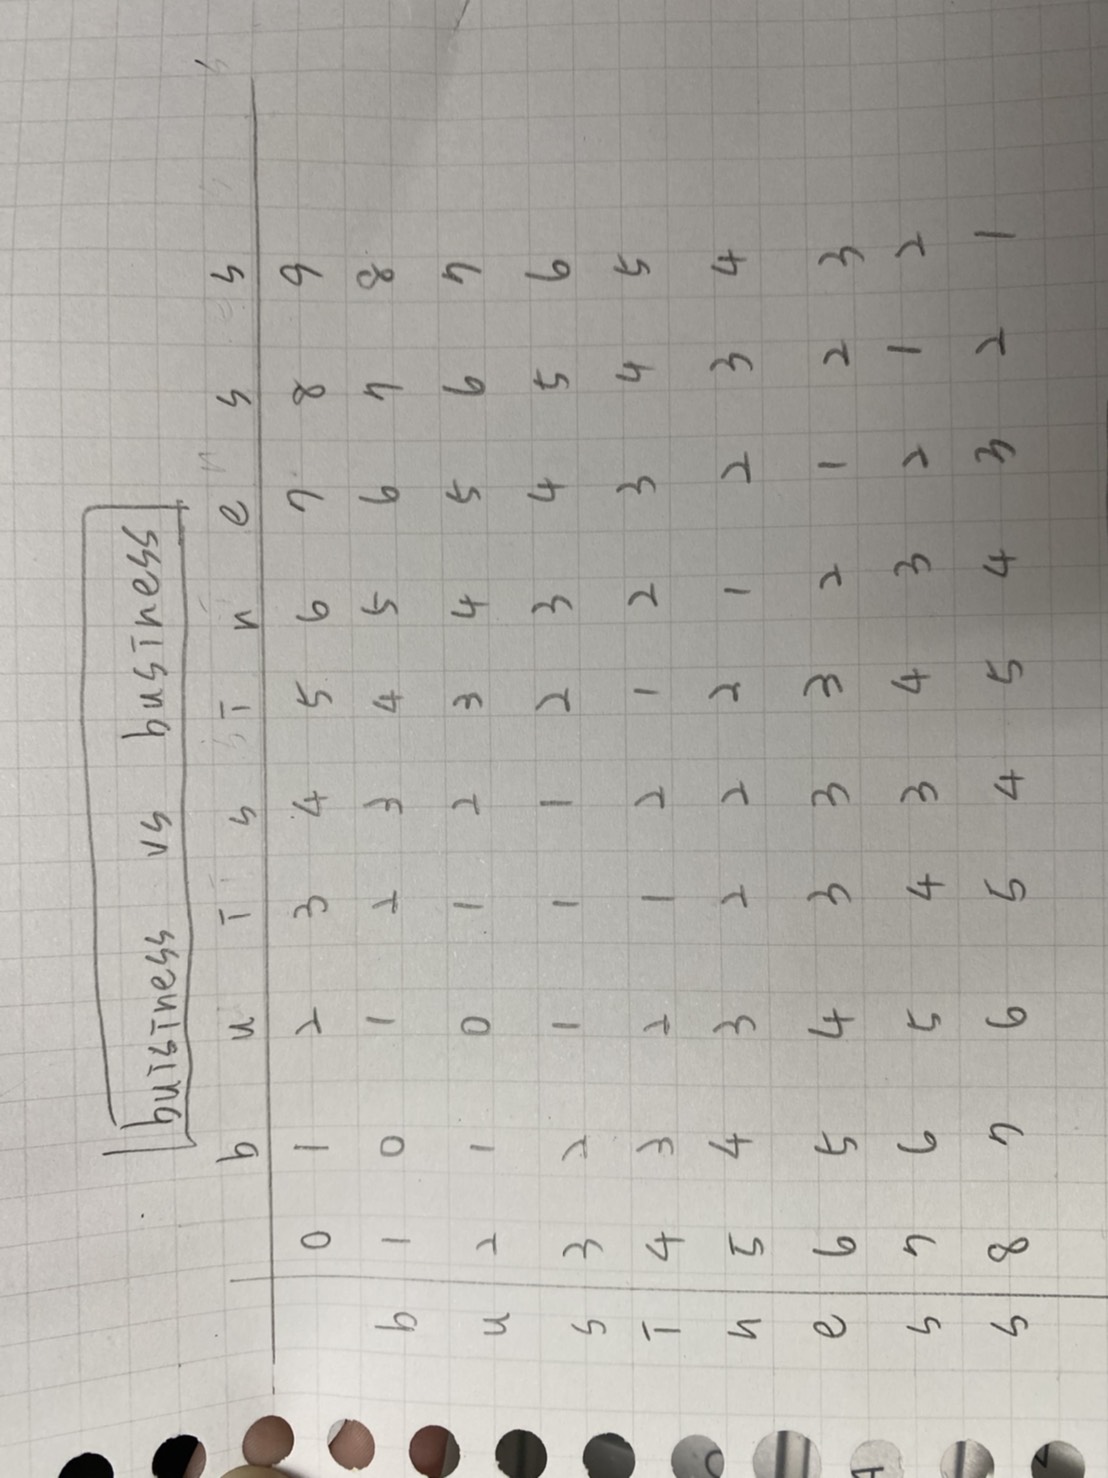 buisiness vs business
b u i s i n e s s
0 1 2 3 4 5 6 7 8 9
b 1 0 1 2 3 4 5 6 7 8
u 2 1 0 1 2 3 4 5 6 7
s 3 2 1 1 1 2 3 4 5 6
i 4 3 2 1 2 1 2 3 4 5
n 5 4 3 2 2 2 1 2 3 4
e 6 5 4 3 3 3 2 1 2 3
s 7 6 5 4 3 4 3 2 1 2
s 8 7 6 5 4 5 4 3 2 1